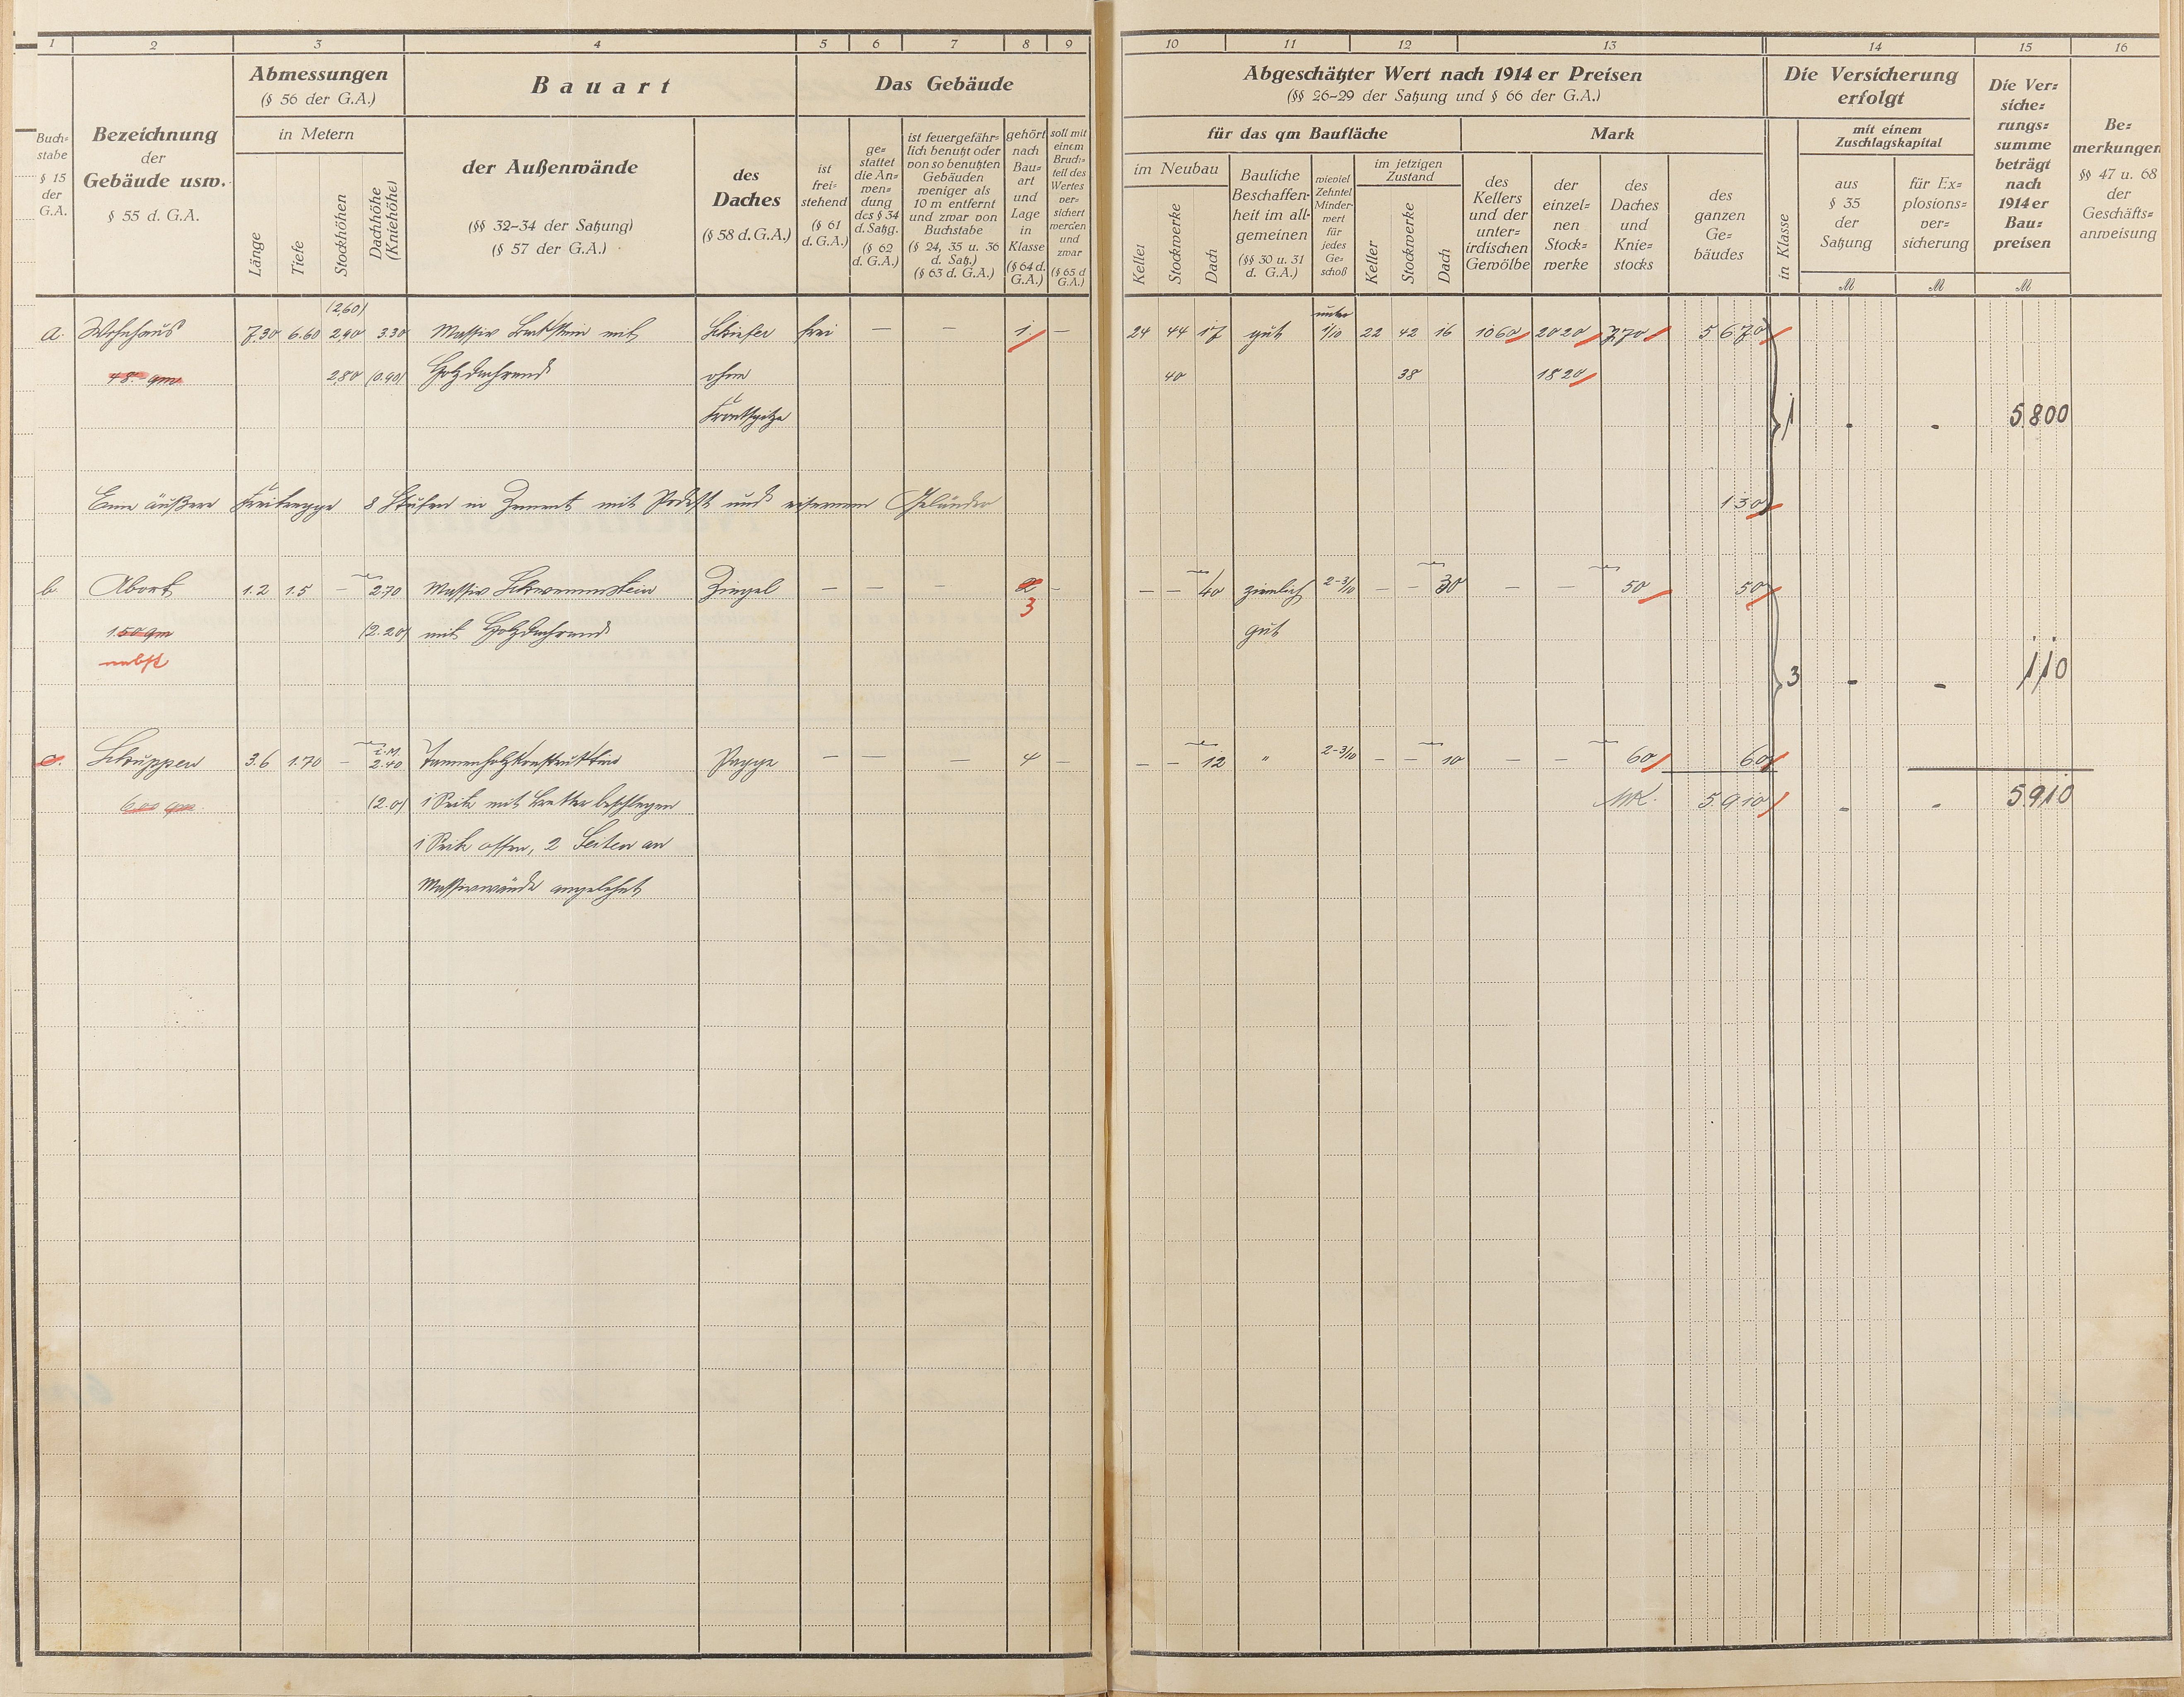 1 2 3 4 5 6 7 8 9
Abmessungen
(§ 56 der G.A.)
in Metern
Bauart
Das Gebäude
Buch=
stabe
§ 15
der
G.A.
Bezeichnung
der
Gebäude usw.
§ 55 d. G.A.
Länge
Tiefe
Stockhöhen
Dachhöhe
(Kniehöhe)
der Außenwände
(§§ 32-34 der Satzung)
(§ 57 der G.A.)
des
Daches
(§ 58 d. G.A.)
ist
frei=
stehend
(§ 61
d. G.A.)
ge=
stattet
die An=
wen=
dung
des § 34
d. Satzg.
(§ 62
d. G.A.)
ist feuergefähr=
lich benutzt oder
von so benutzten
Gebäuden
weniger als
10 m entfernt
und zwar von
Buchstabe
(§ 24, 35 u. 36
d. Satz.)
(§ 63 d. G.A.)
gehört
nach
Bau=
art
und
Lage
in
Klasse
(§ 64 d.
G.A.)
soll mit
einem
Bruch=
teil des
Wertes
ver=
sichert
werden
und
zwar
(§ 65 d.
G.A.)
(2,60)
a. Wohnhaus 7.30 6.60 2,90 3.30 Massiv Backstein mit Schiefer frei — — 1. —
48. qm 2,80 (0.90) Holzdachrand ohne
Frontspitze
Eine äußere Freitreppe 8 Stufen in Zement mit Podest und eisernem Geländer
b Abort 1.2 1.5 — 2.70 Massiv Schwemmstein Ziegel — — — 2 —
3
1.50 qm (2.20) mit Holzdachrand
nebst
i.M.
c. Schuppen 3.6 1.70 — 2.40 Tannenholzkonstruktion Pappe — — — 4 —
6.00 qm (2.0) 1 Seite mit Bretter beschlagen
1 Seite offen, 2 Seiten an
Massivwände angelehnt
10 11 12 13 14 15 16
Abgeschätzter Wert nach 1914 er Preisen
(§§ 26-29 der Satzung und § 66 der G.A.)
für das qm Baufläche
Mark
im Neubau
Keller
Stockwerke
Dach
Bauliche
Beschaffen=
heit im all=
gemeinen
(§§ 30 u. 31
d. G.A.)
wieviel
Zehntel
Minder=
wert
für
jedes
Ge=
schoß
im jetzigen
Zustand
Keller
Stockwerke
Dach
des
Kellers
und der
unter=
irdischen
Gewölbe
der
einzel=
nen
Stock=
werke
des
Daches
und
Knie=
stocks
des
ganzen
Ge=
bäudes
Die Versicherung
erfolgt
in Klasse
mit einem
Zuschlagskapital
aus
§ 35
der
Satzung
für Ex=
plosions=
ver=
sicherung
Die Ver=
siche=
rungs=
summe
beträgt
nach
1914 er
Bau=
preisen
Be=
merkungen
§§ 47 u. 68
der
Geschäfts=
anweisung
M M M
unter
24 44 17 gut 1/10 22 42 16 1060 2020 770 5670
40 38 1820
1 - - 5800
130
— — 40 ziemlich 2-3/10 — — 30 — — 50 50
gut
3 - - 110
— — 12 " 2-3/10 — — 10 — — 60 60
MK. 5910 - - 5910